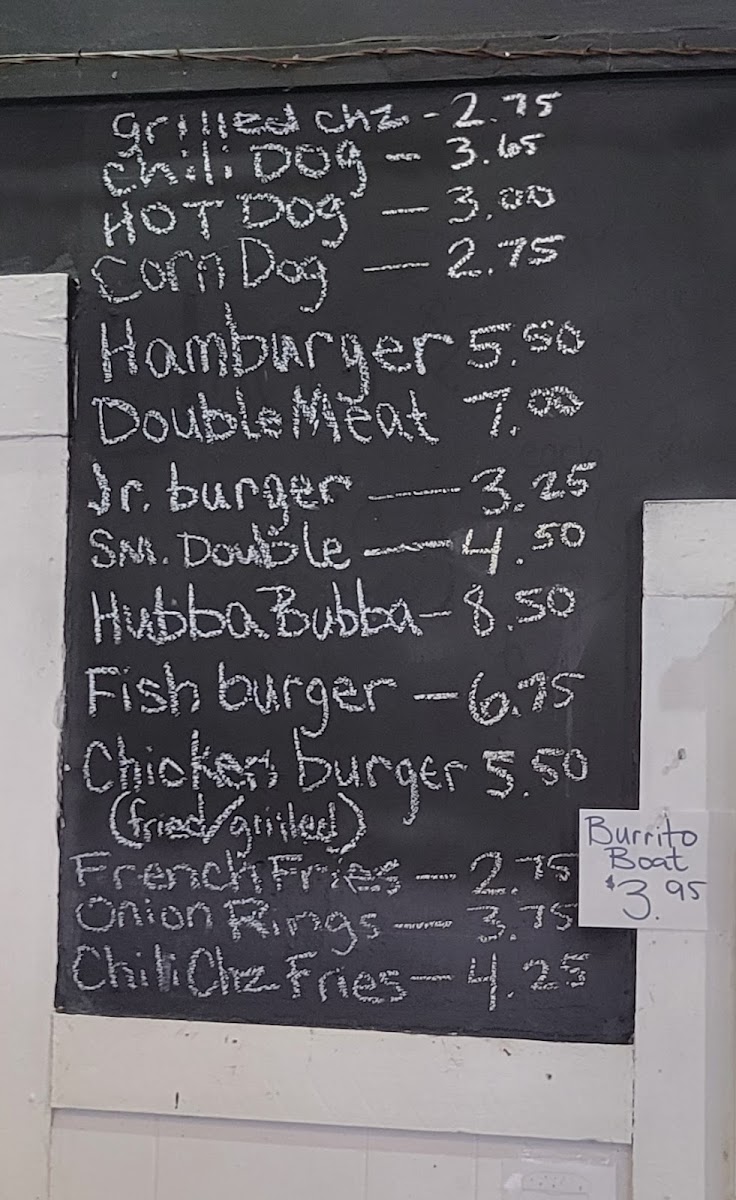 grilled chz - 2.75
Chili DOg - 3.65
HOT DOg - 3.00
Corn Dog - 2.75
Hamburger 5.50
Double Meat 7.00
Jr. burger - 3.25
SM. Double - 4.50
Hubba Bubba - 8.50
Fish burger - 6.75
Chicken burger 5.50
(fried/grilled)
French Fries - 2.75
Onion Rings - 3.75
Chili Chz Fries - 4.25
Burrito
Boat
$3.95